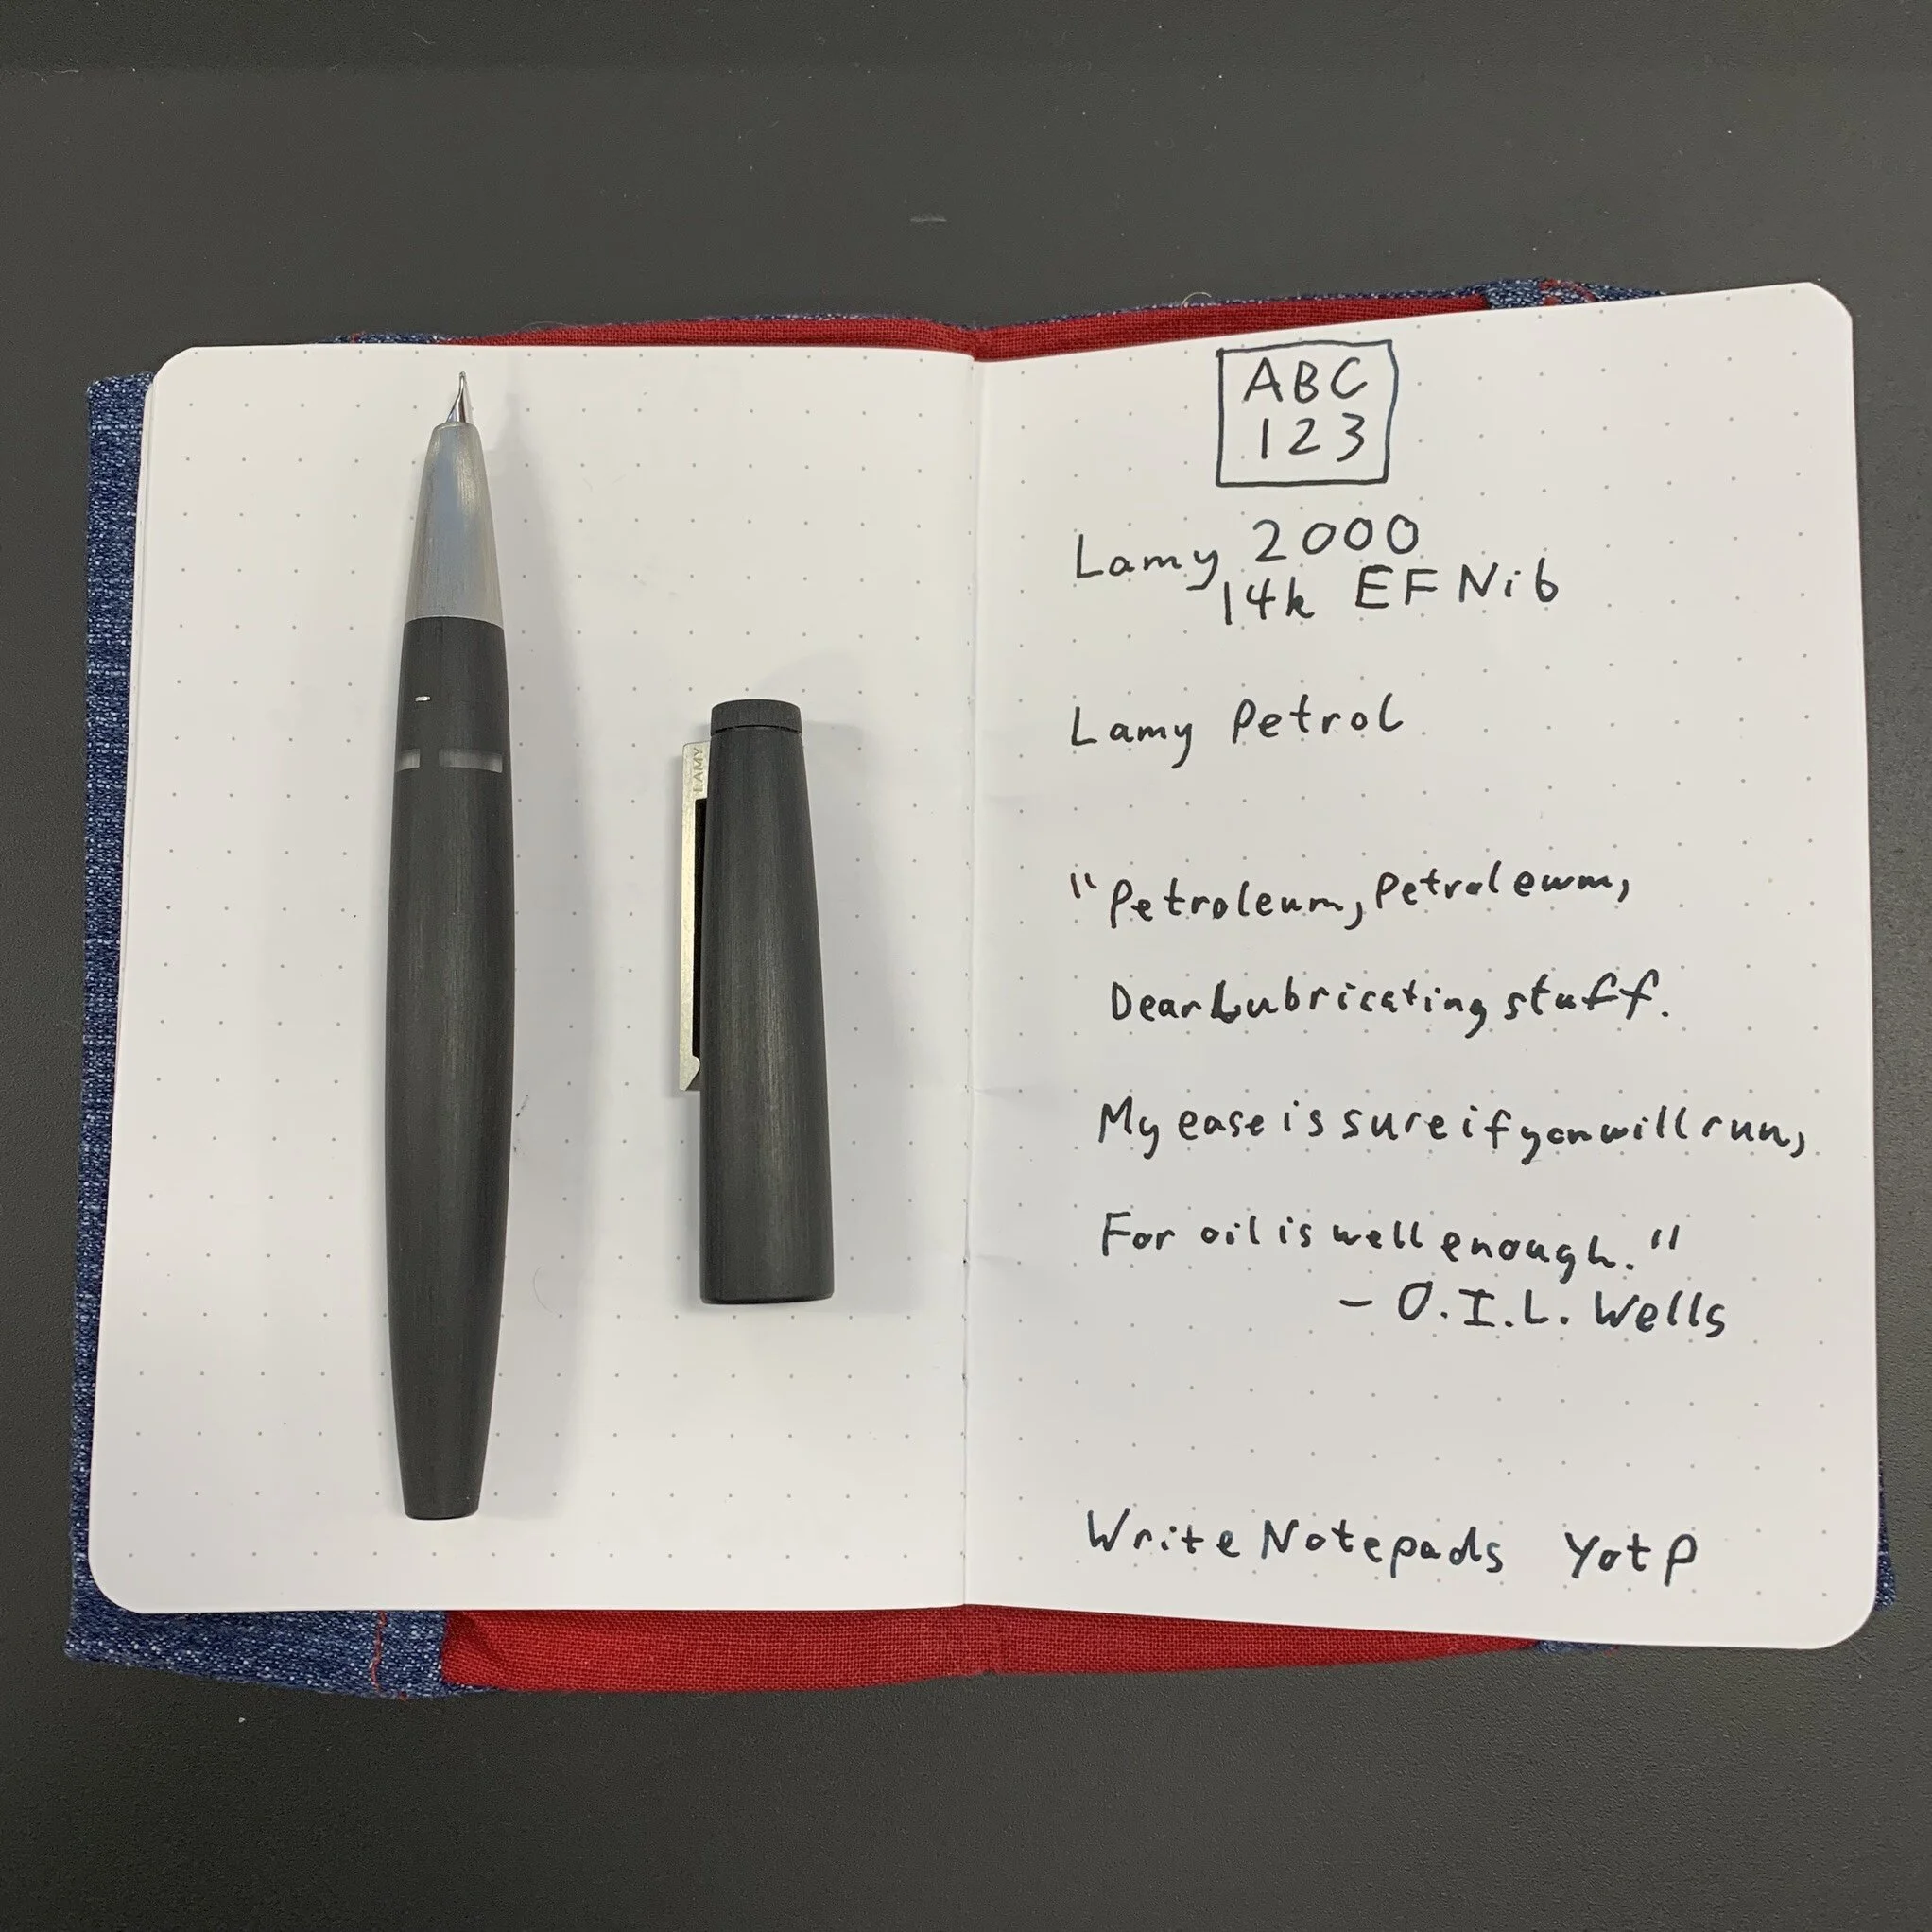 LAMY
ABC
123
Lamy 2000
14k EF Nib
Lamy Petrol
"Petroleum, Petroleum,
Dear Lubricating stuff.
My ease is sure if you will run,
For oil is well enough."
- O.I.L. Wells
Write Notepads YotP